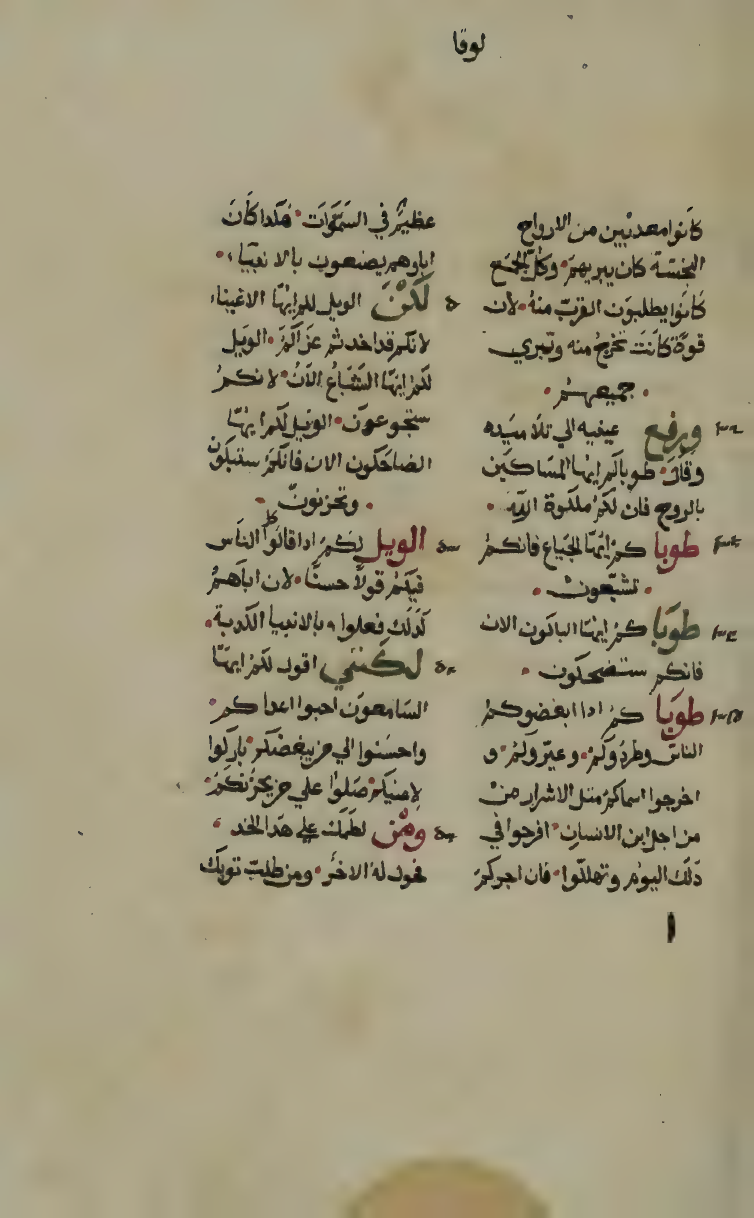 لوقا
كانوا معدبين من الارواح
النجسة كان يبريهم وكل الجمع
كانوا يطلبون القرب منه لان
قوة كانت تخرج منه وتبري
جميعهم
ورفع عينيه الي تلاميده
وقال طوبا لكم ايها المساكين
بالروح فان لكم ملكوة الله
طوبا كم ايها الجياع فانكم
تشبعون
طوبا كم ايها الباكون الان
فانكم ستضحكون
طوبا كم ادا ابغضوكم
الناس وطردوكم وعيروكم و
اخرجوا اسماكم متل الاشرار من
من اجل ابن الانسان افرحوا في
دلك اليوم وتهللوا فان اجركم
عظيم في السموات هكدا كان
اباوهم يصنعون بالانبياء
لكن الويل لكم ايها الاغنياء
لانكم قد اخدتم عزاكم الويل
لكم ايها الشباع الان لانكم
ستجوعون الويل لكم ايها
الضاحكون الان فانكم ستبكون
وتحزنون
الويل لكم ادا قالوا كل الناس
فيكم قولا حسنا لان اباهم
كدلك فعلوا بالانبيا الكدبة
لكنني اقول لكم ايها
السامعون احبوا اعداكم
واحسنوا الي من يبغضكم باركوا
لاعنيكم صلوا علي من يحزنكم
ومن لطمك علي هدا الخد
فحول له الاخر ومن طلب توبك